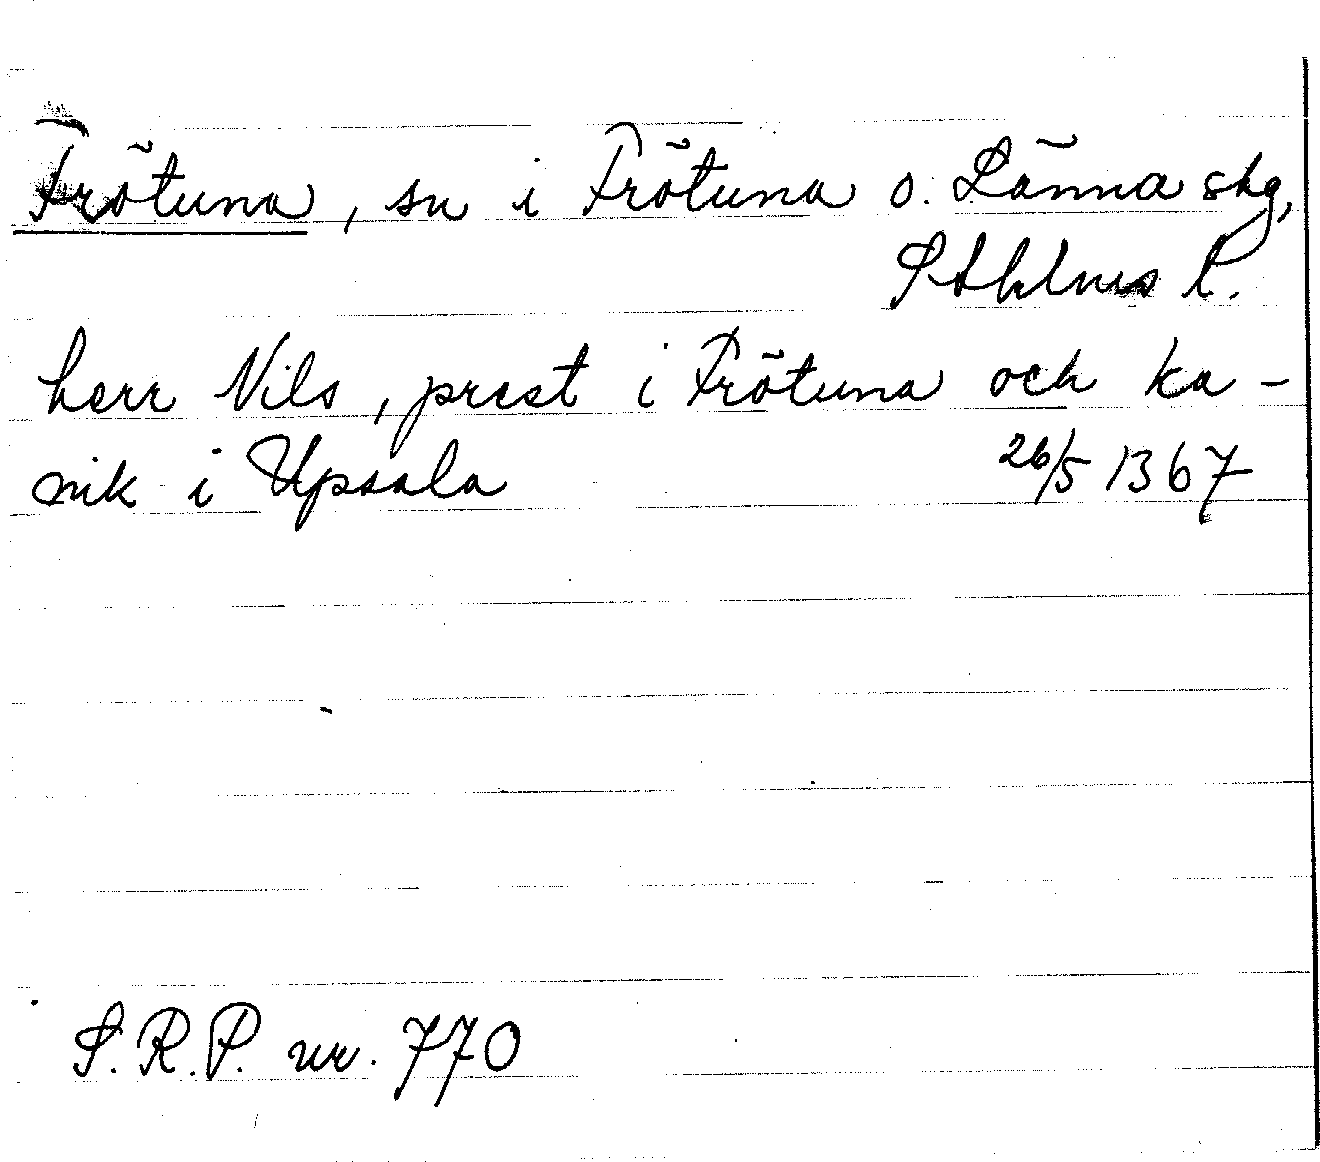 Frötuna, sn i Frötuna o. Länna skg,
Sthlms l.
herr Nils, prest i Frötuna och ka-
nik i Upsala 26/5 1367
S.R.P. nr. 770